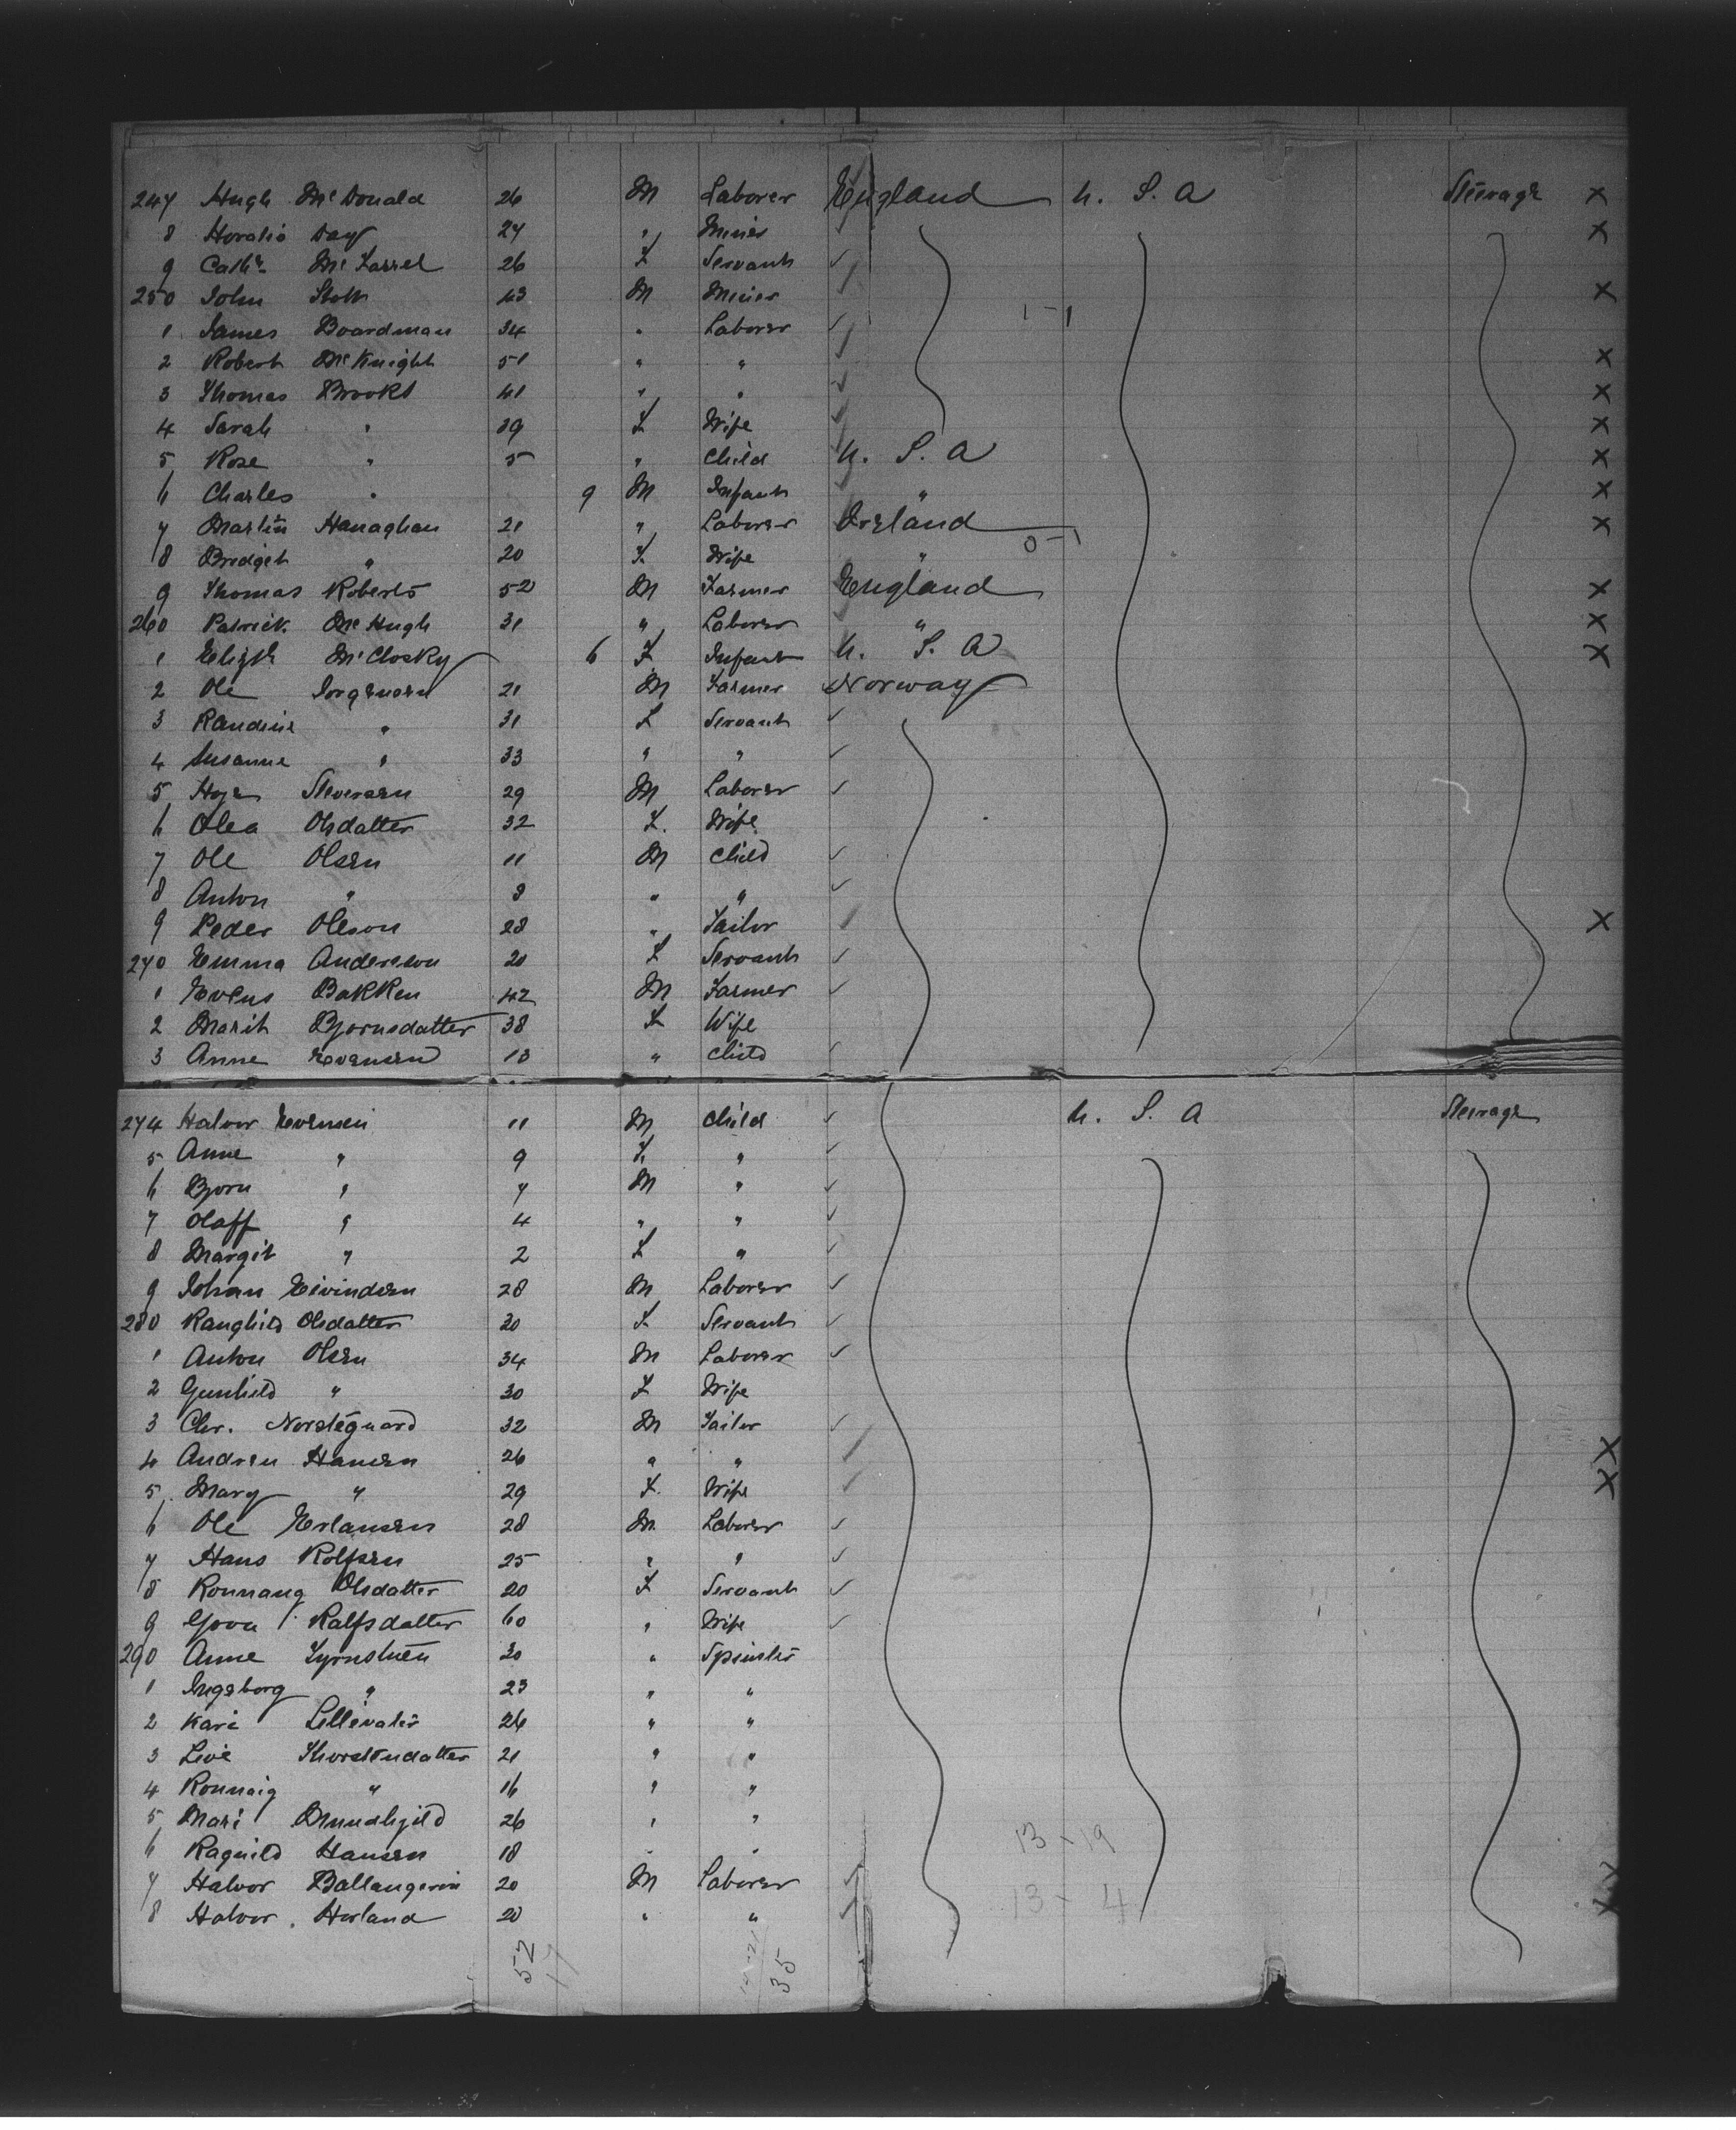 247 Hugh McDonald 26 M Laborer England U. S. A Steerage X
8 Horatio Day 27 " Miner X
9 Cathr. McFarrel 26 F Servant
250 John Stott 43 M Miner X
1 James Boardman 34 " Laborer 1-1
2 Robert McKnight 51 " " X
3 Thomas Brooks 41 " " X
4 Sarah " 39 F Wife X
5 Rose " 5 " Child U. S. A X
6 Charles " 9 M Infant " X
7 Martin Hanaghan 21 " Laborer Ireland X
8 Bridget " 20 F Wife " 0-1
9 Thomas Roberts 52 M Farmer England X
260 Patrick McHugh 31 " Laborer " X
1 Elizth McClosky 6 F Infant U. S. A X
2 Ole Jorgensen 21 M Farmer Norway
3 Randine " 31 F Servant
4 Susanne " 33 " "
5 Stevensen 29 M Laborer
6 Olea Olsdatter 32 F. Wife
7 Ole Olsen 11 M Child
8 Anton " 8 " "
9 Peder Oleson 28 " Tailor X
270 Emma Anderson 20 F Servant
1 Evens Bakken 42 M Farmer
2 Marit Bjornsdatter 38 F Wife
3 Anne Evensen 13 " Child
274 Halvor Evensen 11 M Child U. S. A Steerage
5 Anne " 9 F. "
6 Bjorn " 7 M "
7 Olaff " 4 " "
8 Margit " 2 F "
9 Johan Eivindsen 28 M Laborer
280 Ranghild Olsdatter 20 F Servant
1 Anton Olsen 34 M Laborer
2 Gunhild " 30 F Wife
3 Chr. Norstegaard 32 M Tailor
4 Andrew Hansen 26 " " X
5 Mary " 29 F. Wife X
6 Ole Erlansen 28 M Laborer
7 Hans Rolfsen 25 " "
8 Ronnang Olsdatter 20 F Servant
9 Ralfsdatter 60 " Wife
290 Anne 20 " Spinster
1 Ingeborg " 23 " "
2 Kari 26 " "
3 Live Thorstendatter 21 " "
4 Ronnaig " 16 " "
5 Mari 26 " "
6 Ragnild Hansen 18 " " 13-19
7 Halvor 20 M Laborer X
8 Halvor Herland 20 " " 13-4 X
52 17 35